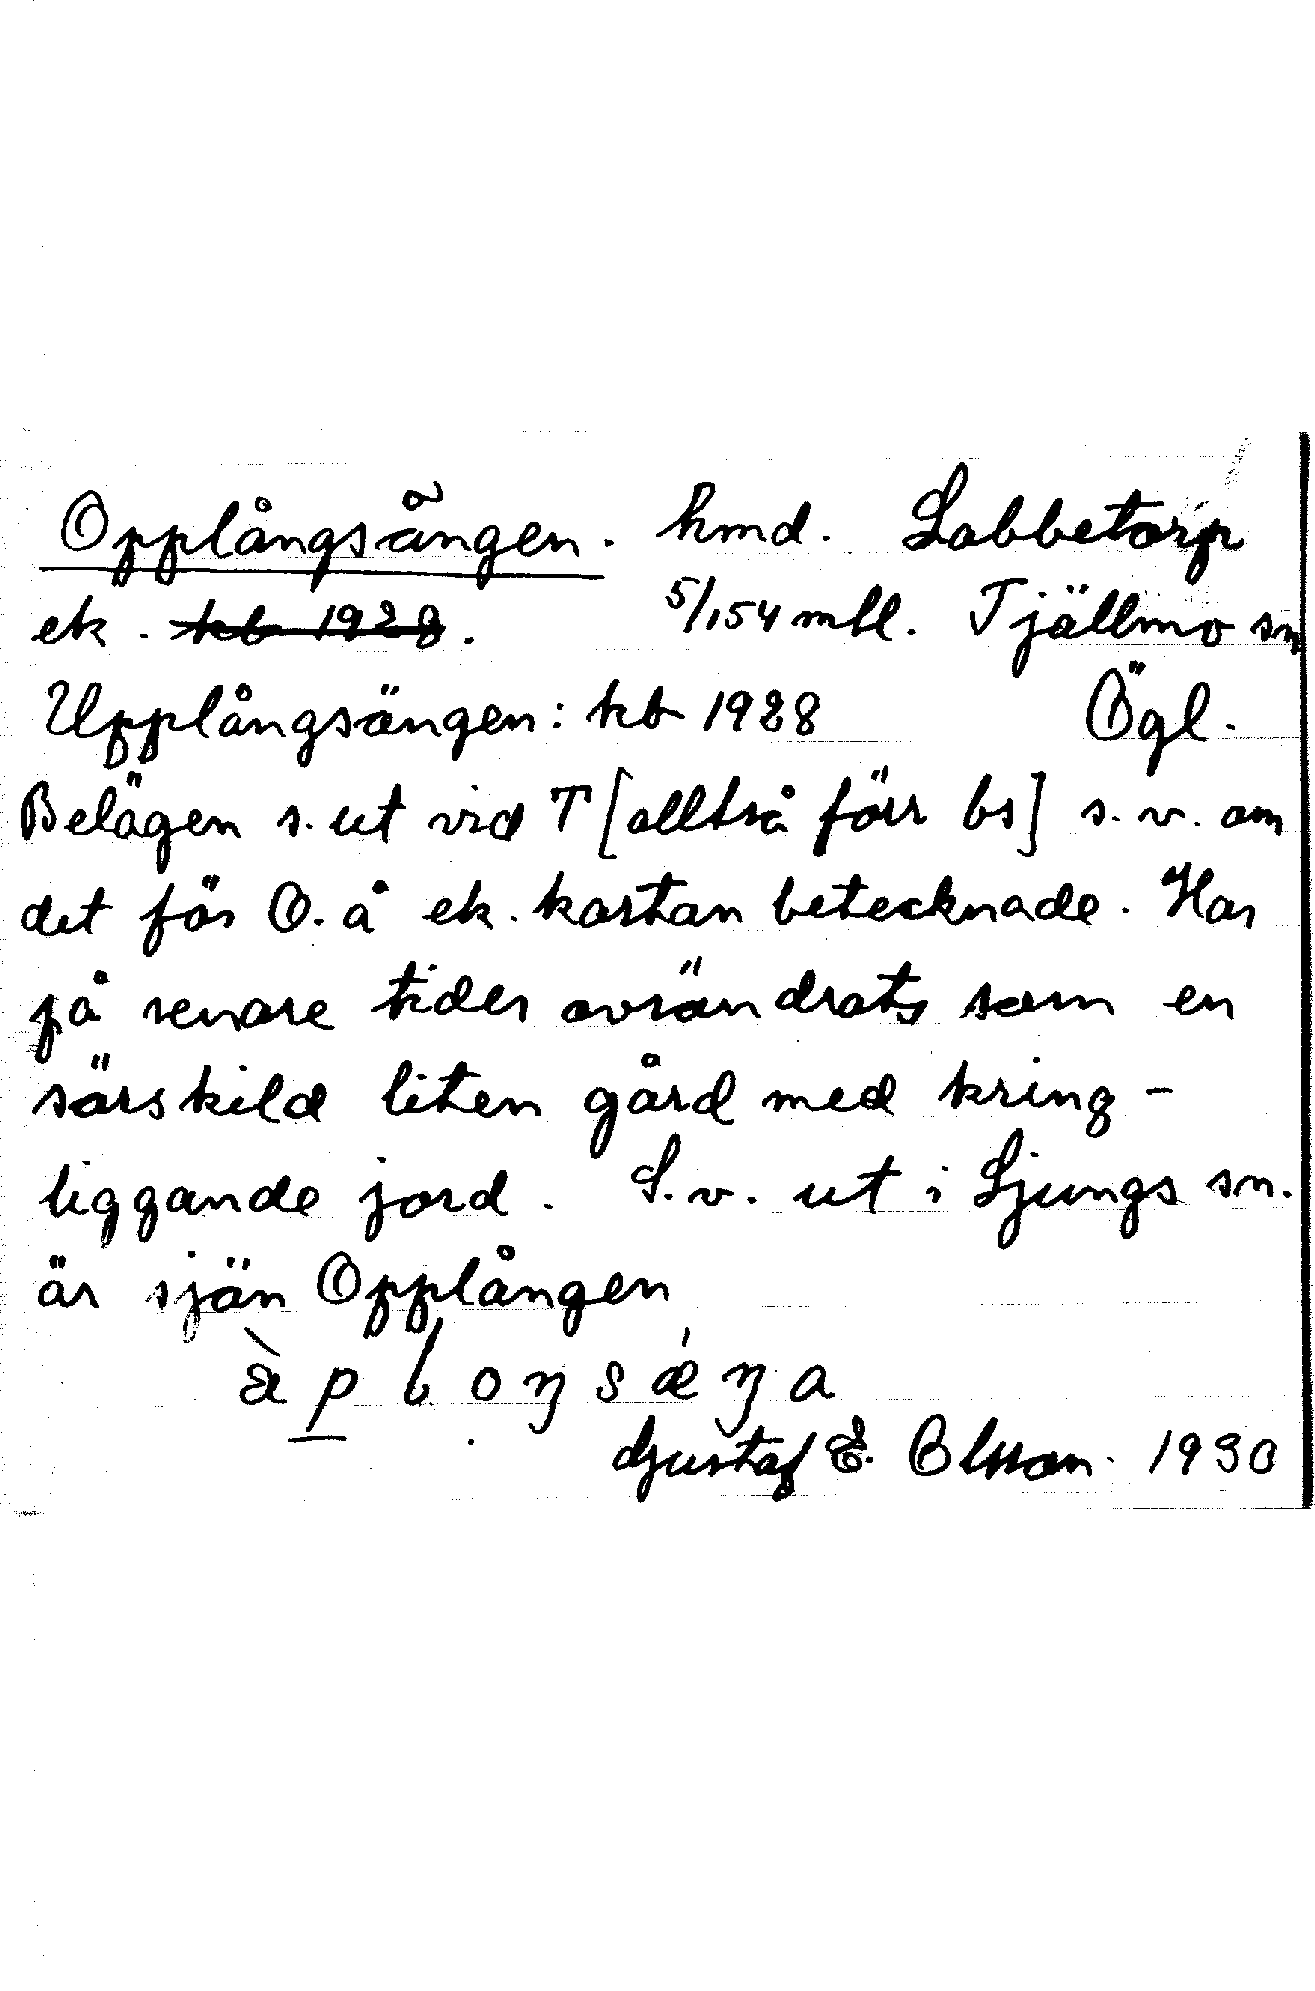 Opplångsängen. hmd. Labbetorp
ek. kb 1928. 5/154 mtl. Tjällmo sn
Upplångsängen: kb 1928 Ögl.
Belägen s. ut vid T [alltså förr bs] s. v. om
det för O. å ek. kartan betecknade. Har
på senare tider avsöndrats som en
särskild liten gård med kring-
liggande jord. S. v. ut i Ljungs sn.
är sjön Opplången
àploŋsǽŋa
Gustaf E. Olsson. 1930